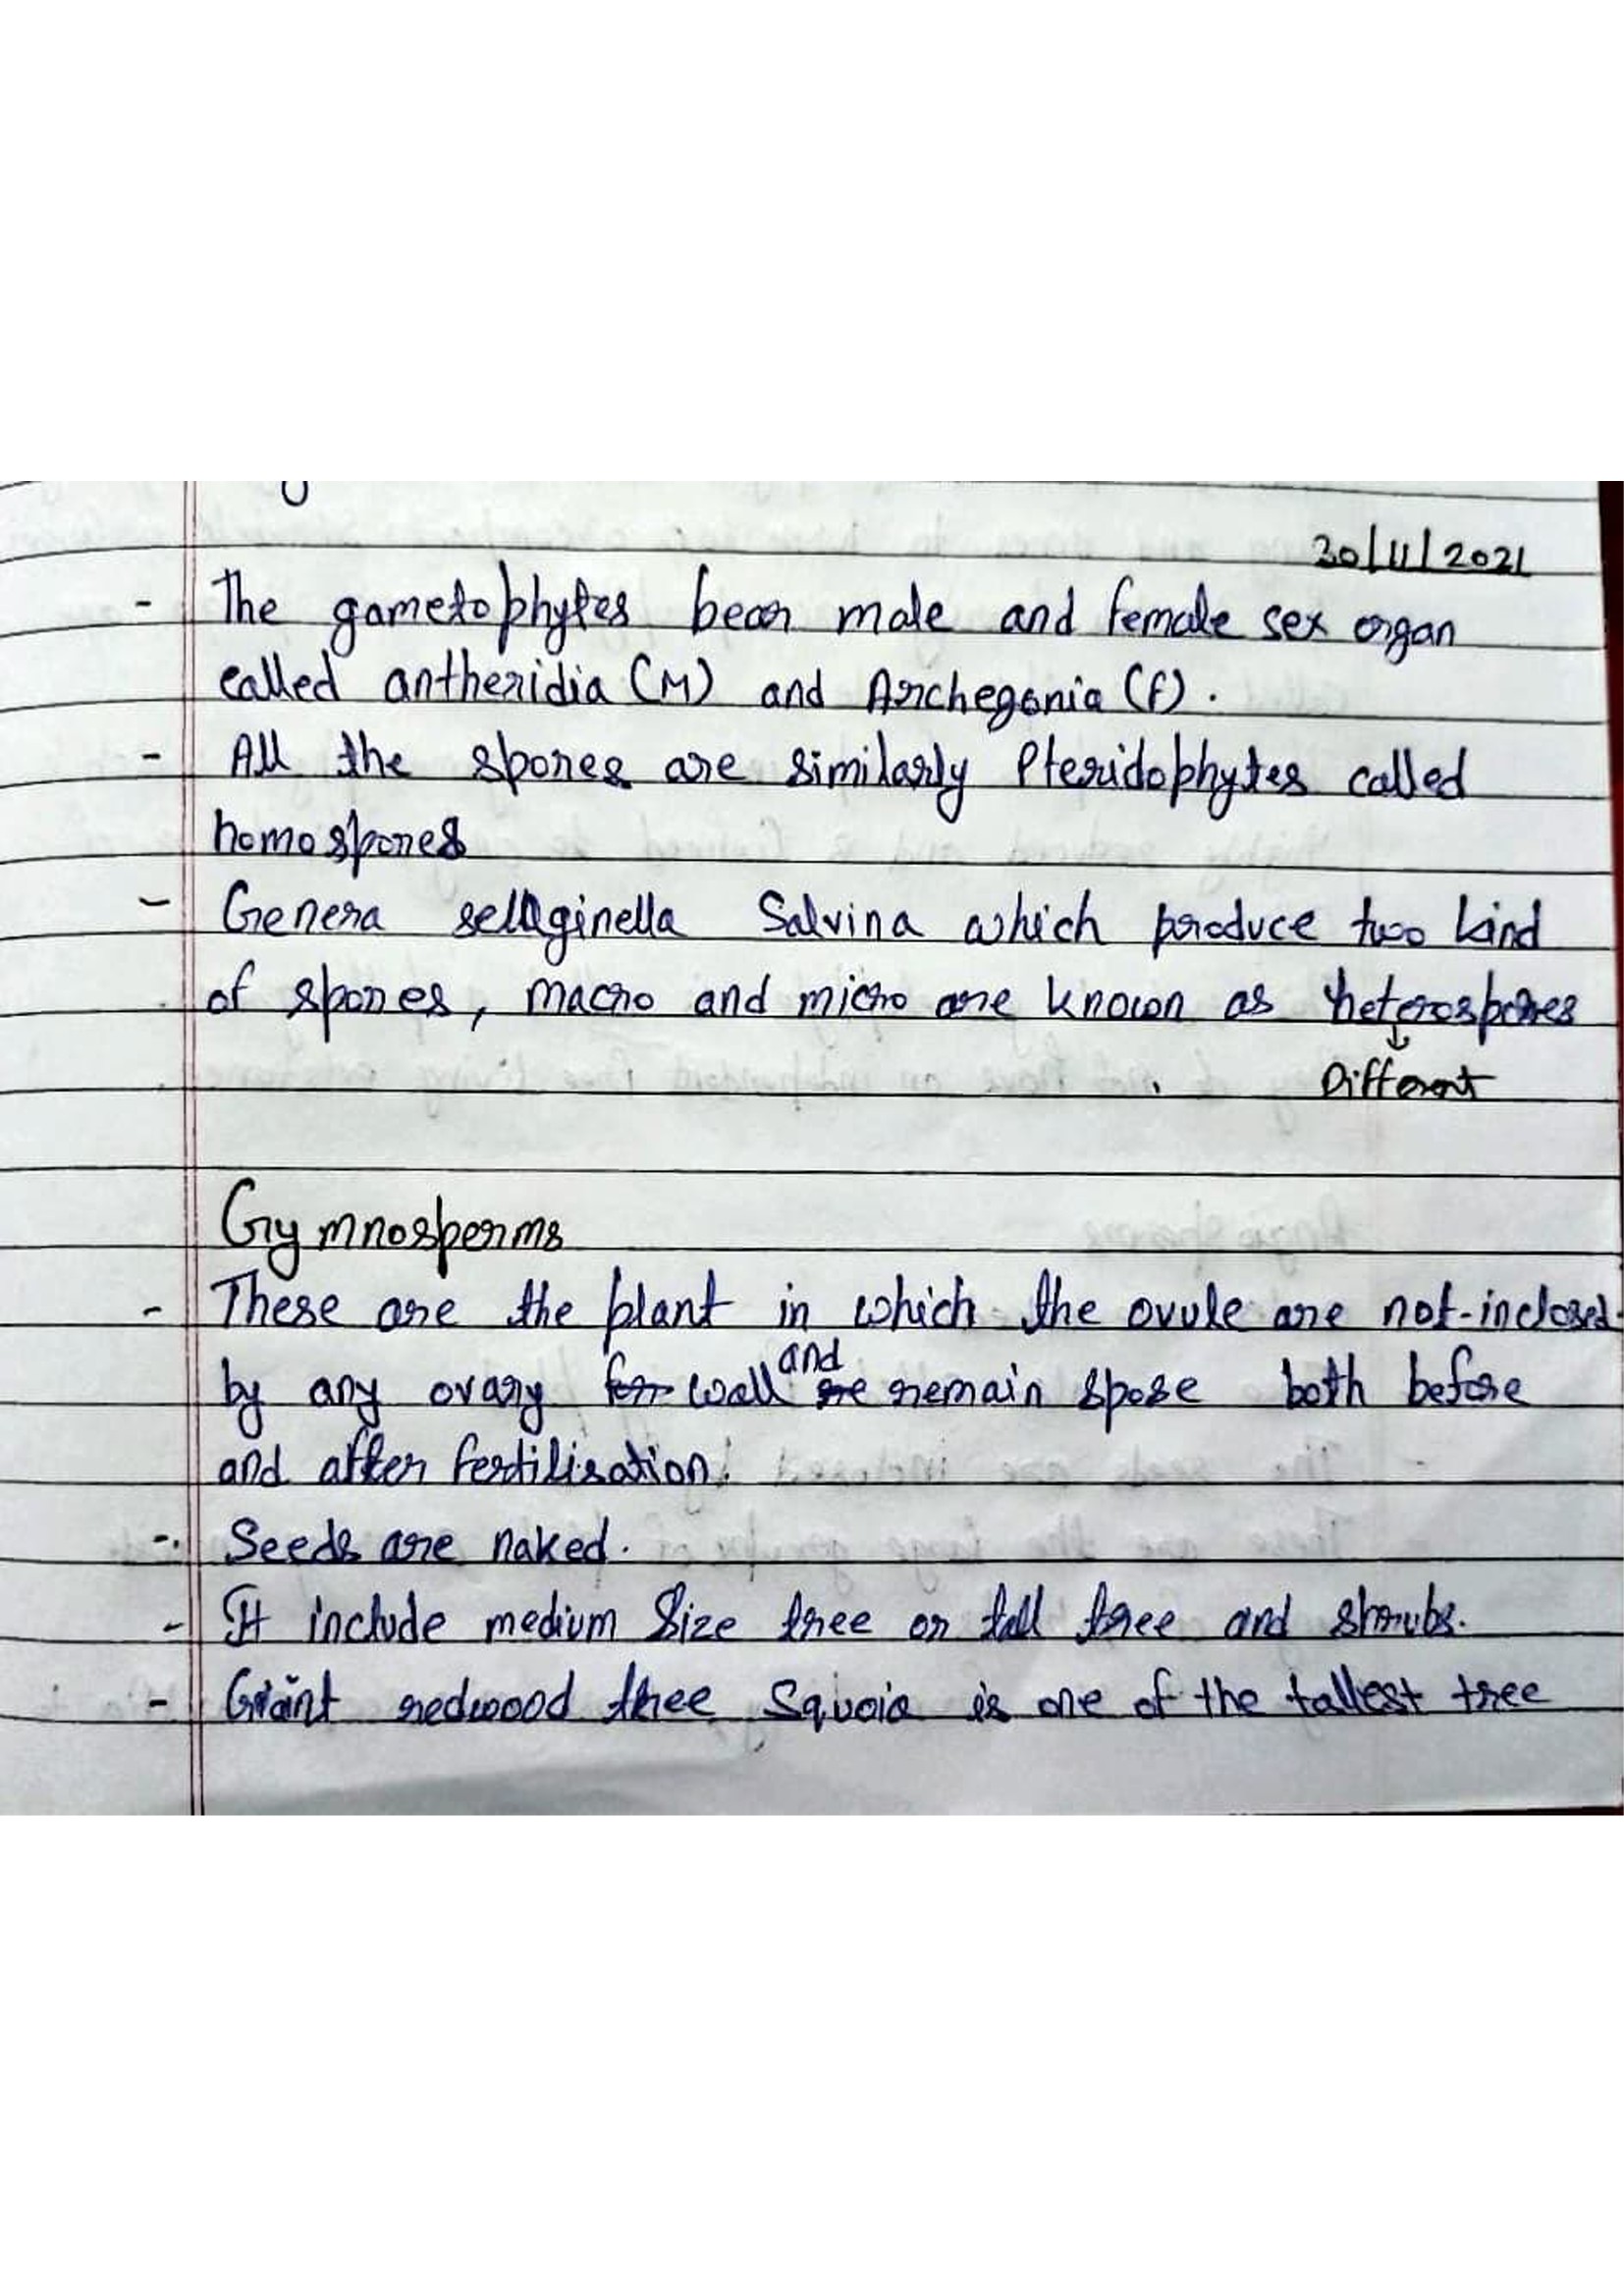 30/11/2021
- The gametophytes bear male and female sex organ
called antheridia (M) and Archegonia (F).
- All the spores are similarly Pteridophytes called
homospores
- Genera sellaginella Salvina which produce two kind
of spores, macro and micro are known as heterospores
↓
Different
Gymnosperms
- These are the plant in which the ovule are not-inclosed
by any ovary for wall and re remain spose both before
and after fertilisation.
- Seeds are naked.
- It include medium Size tree or tall tree and shrubs.
- Giant redwood tree Squoia is one of the tallest tree